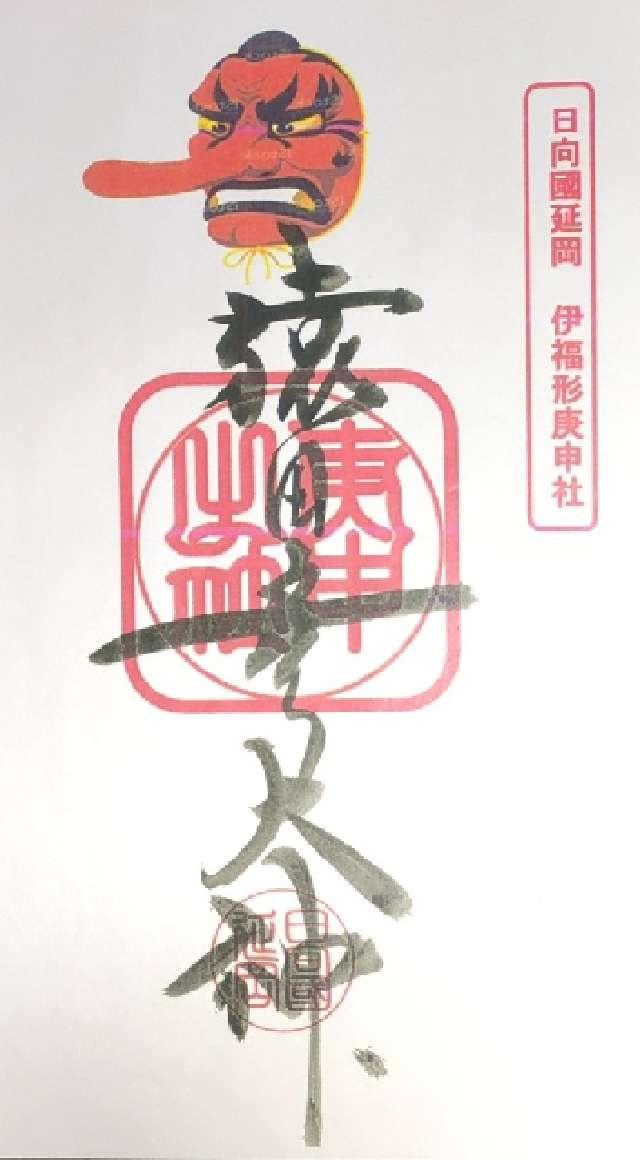 日向國延岡 伊福形庚申社
猿田彦大神
庚申
之神
日向國
延岡